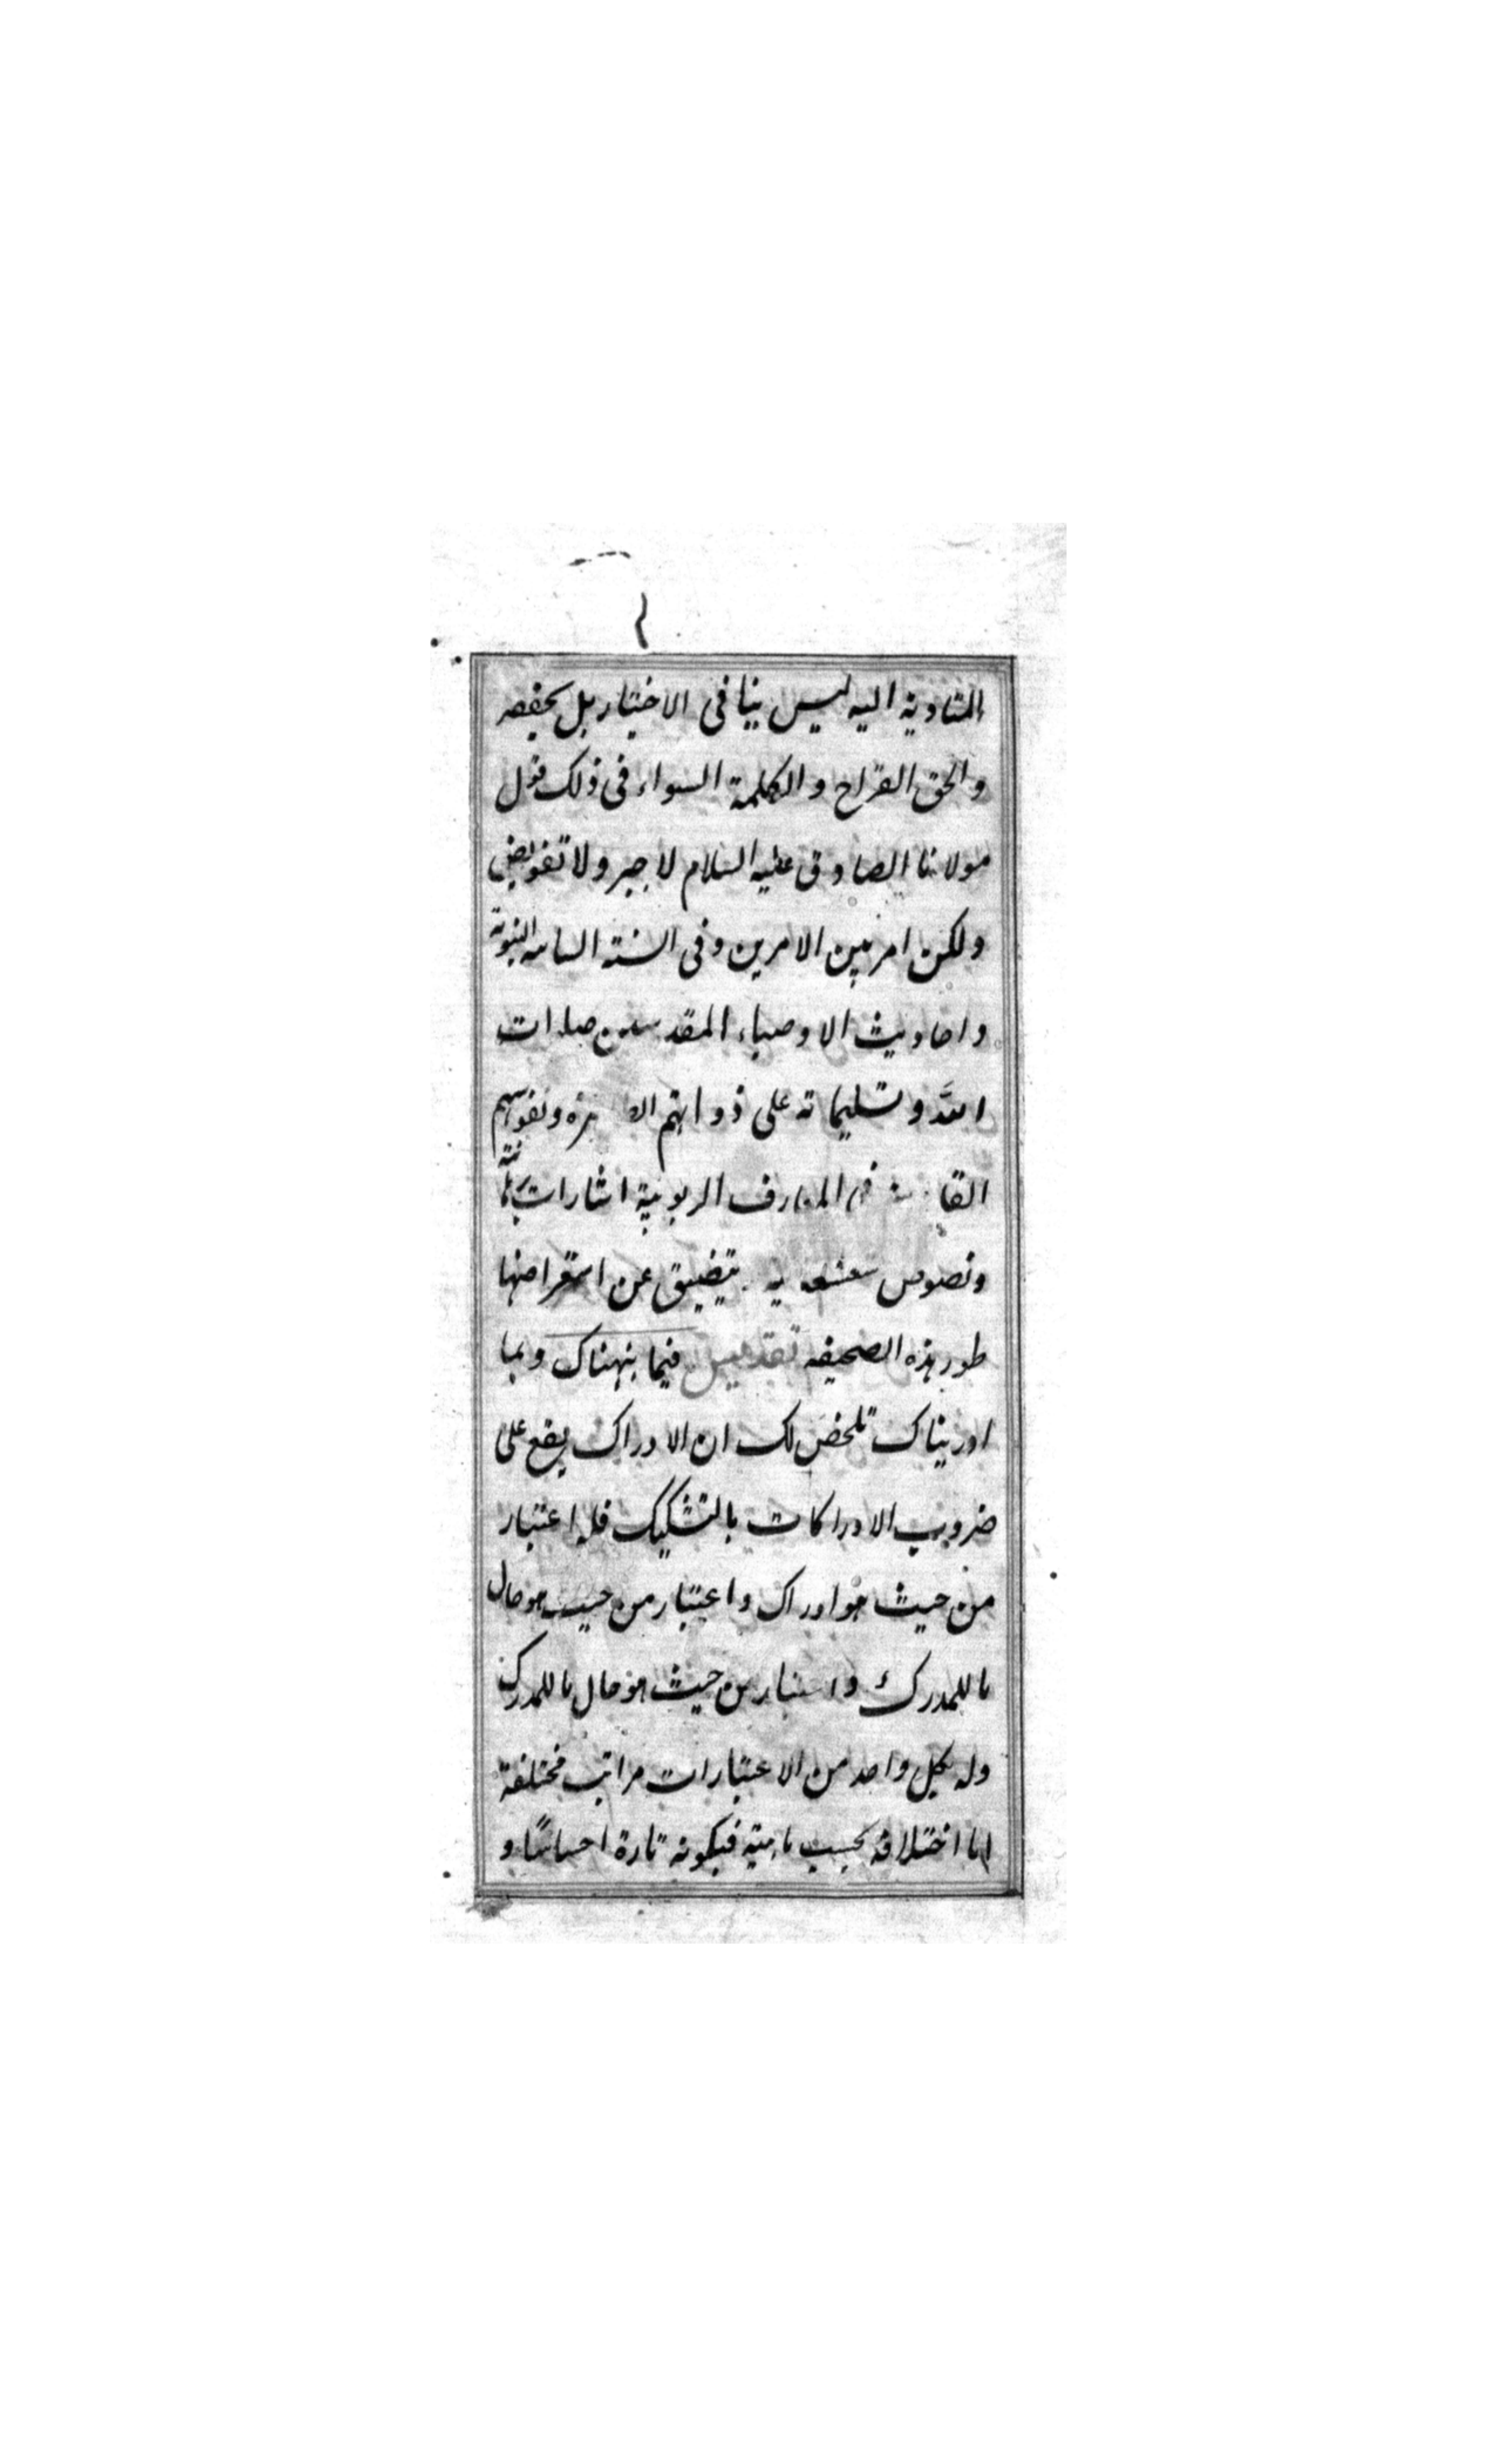 المتادية اليه ليس ينافى الاختيار بل يحققه
والحق القراح والكلمة السواء فى ذلك قول
مولانا الصادق عليه السلام لا جبر ولا تفويض
ولكن امر بين الامرين وفى السنة النبوية
واحاديث الاوصياء المقدسين صلوات
الله وتسليماته على ذواتهم ونفوسهم
فى المعارف الربوبية اشارات
ونصوص يتضيق عن استقراضها
طور هذه الصحيفه تقديس فيما بينهناك وبما
اوريناك تلخص لك ان الادراك يقع على
ضروب الادراكات بالتشكيك فله اعتبار
من حيث هو ادراك واعتبار من حيث هو حال
ما للمدرك واعتبار من حيث هو حال ما للمدرك
وله بكل واحد من الاعتبارات مراتب مختلفة
اما اختلافه بحسب ماهيته فبكونه تارة احساسًا و